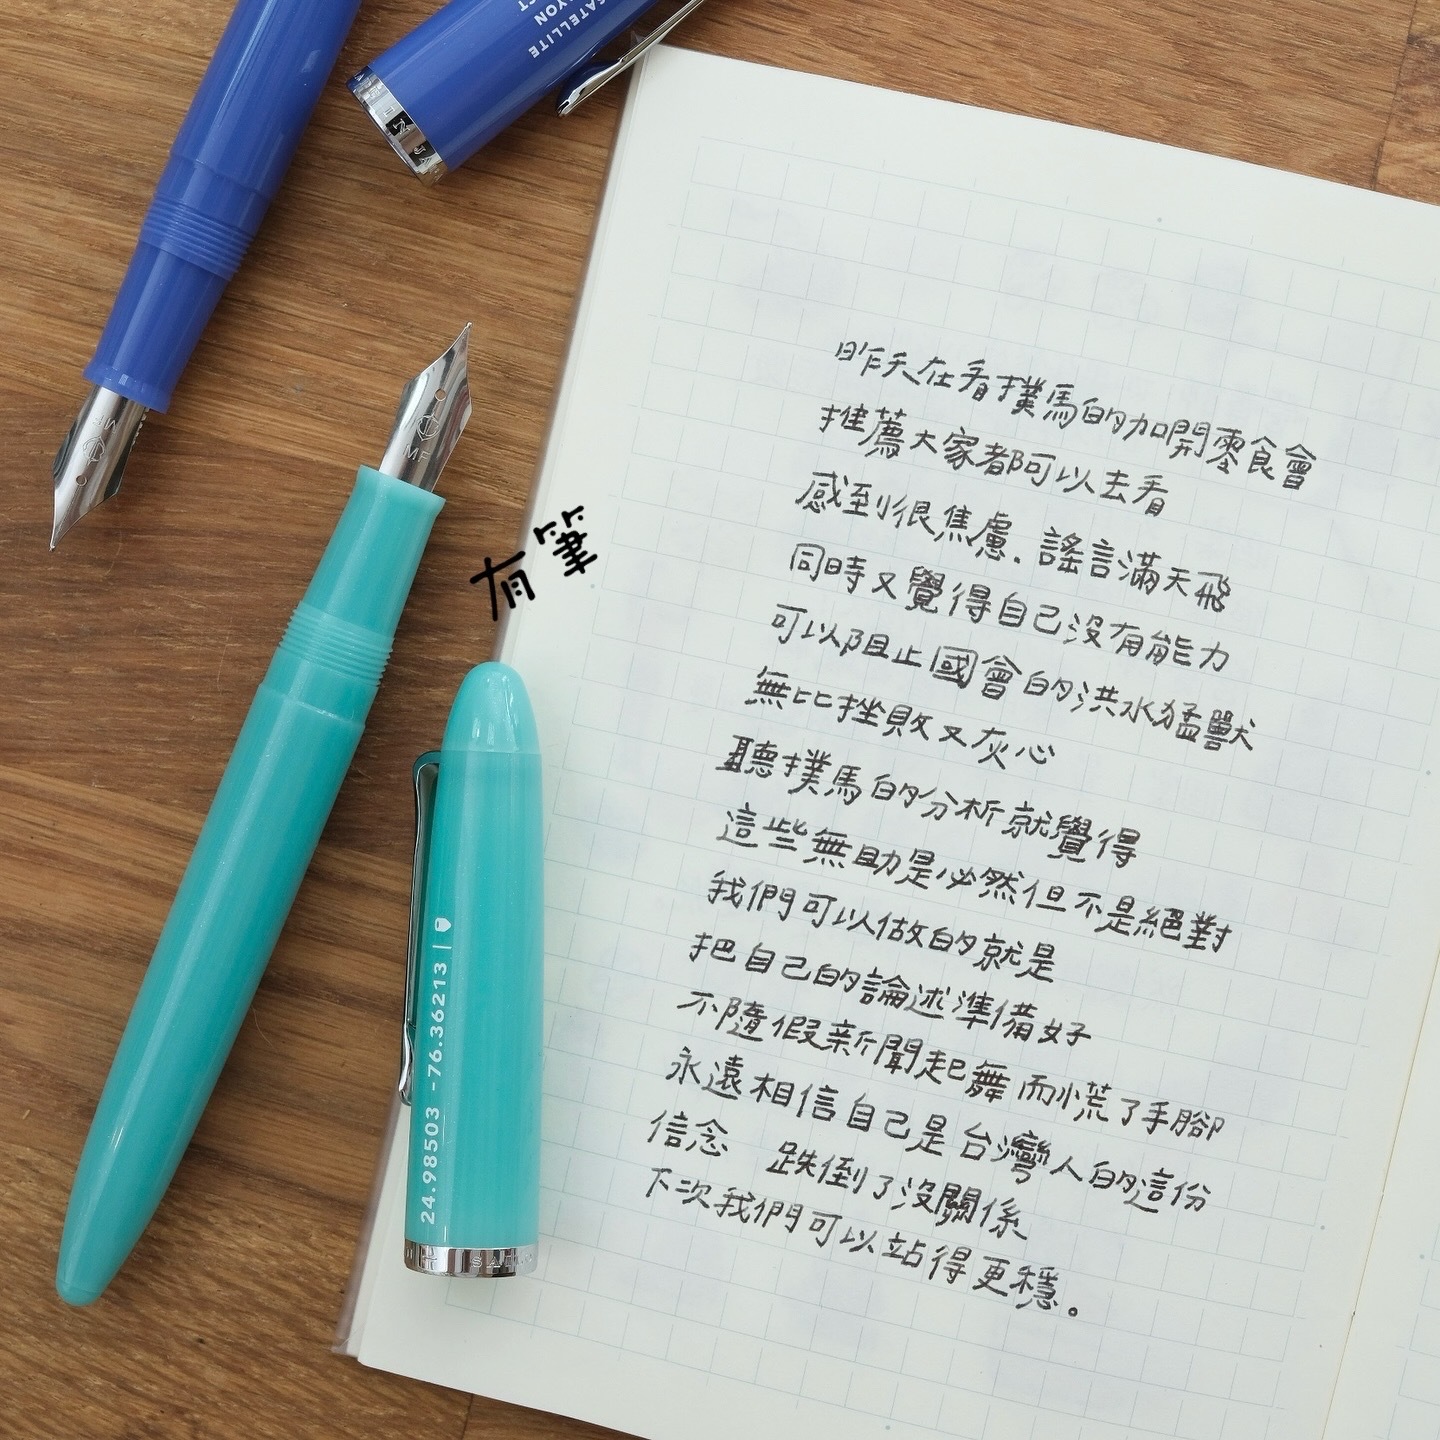 SATELLITE
昨天在看撲馬的加開零食會
推薦大家都可以去看
感到很焦慮.謠言滿天飛
同時又覺得自己沒有能力
可以阻止國會的洪水猛獸
無比挫敗又灰心
聽撲馬的分析就覺得
這些無助是必然但不是絕對
我們可以做的就是
把自己的論述準備好
不隨假新聞起舞而慌了手腳
永遠相信自己是台灣人的這份
信念 跌倒了沒關係
下次我們可以站得更穩。
有筆
MF
MF
24.98503 -76.36213